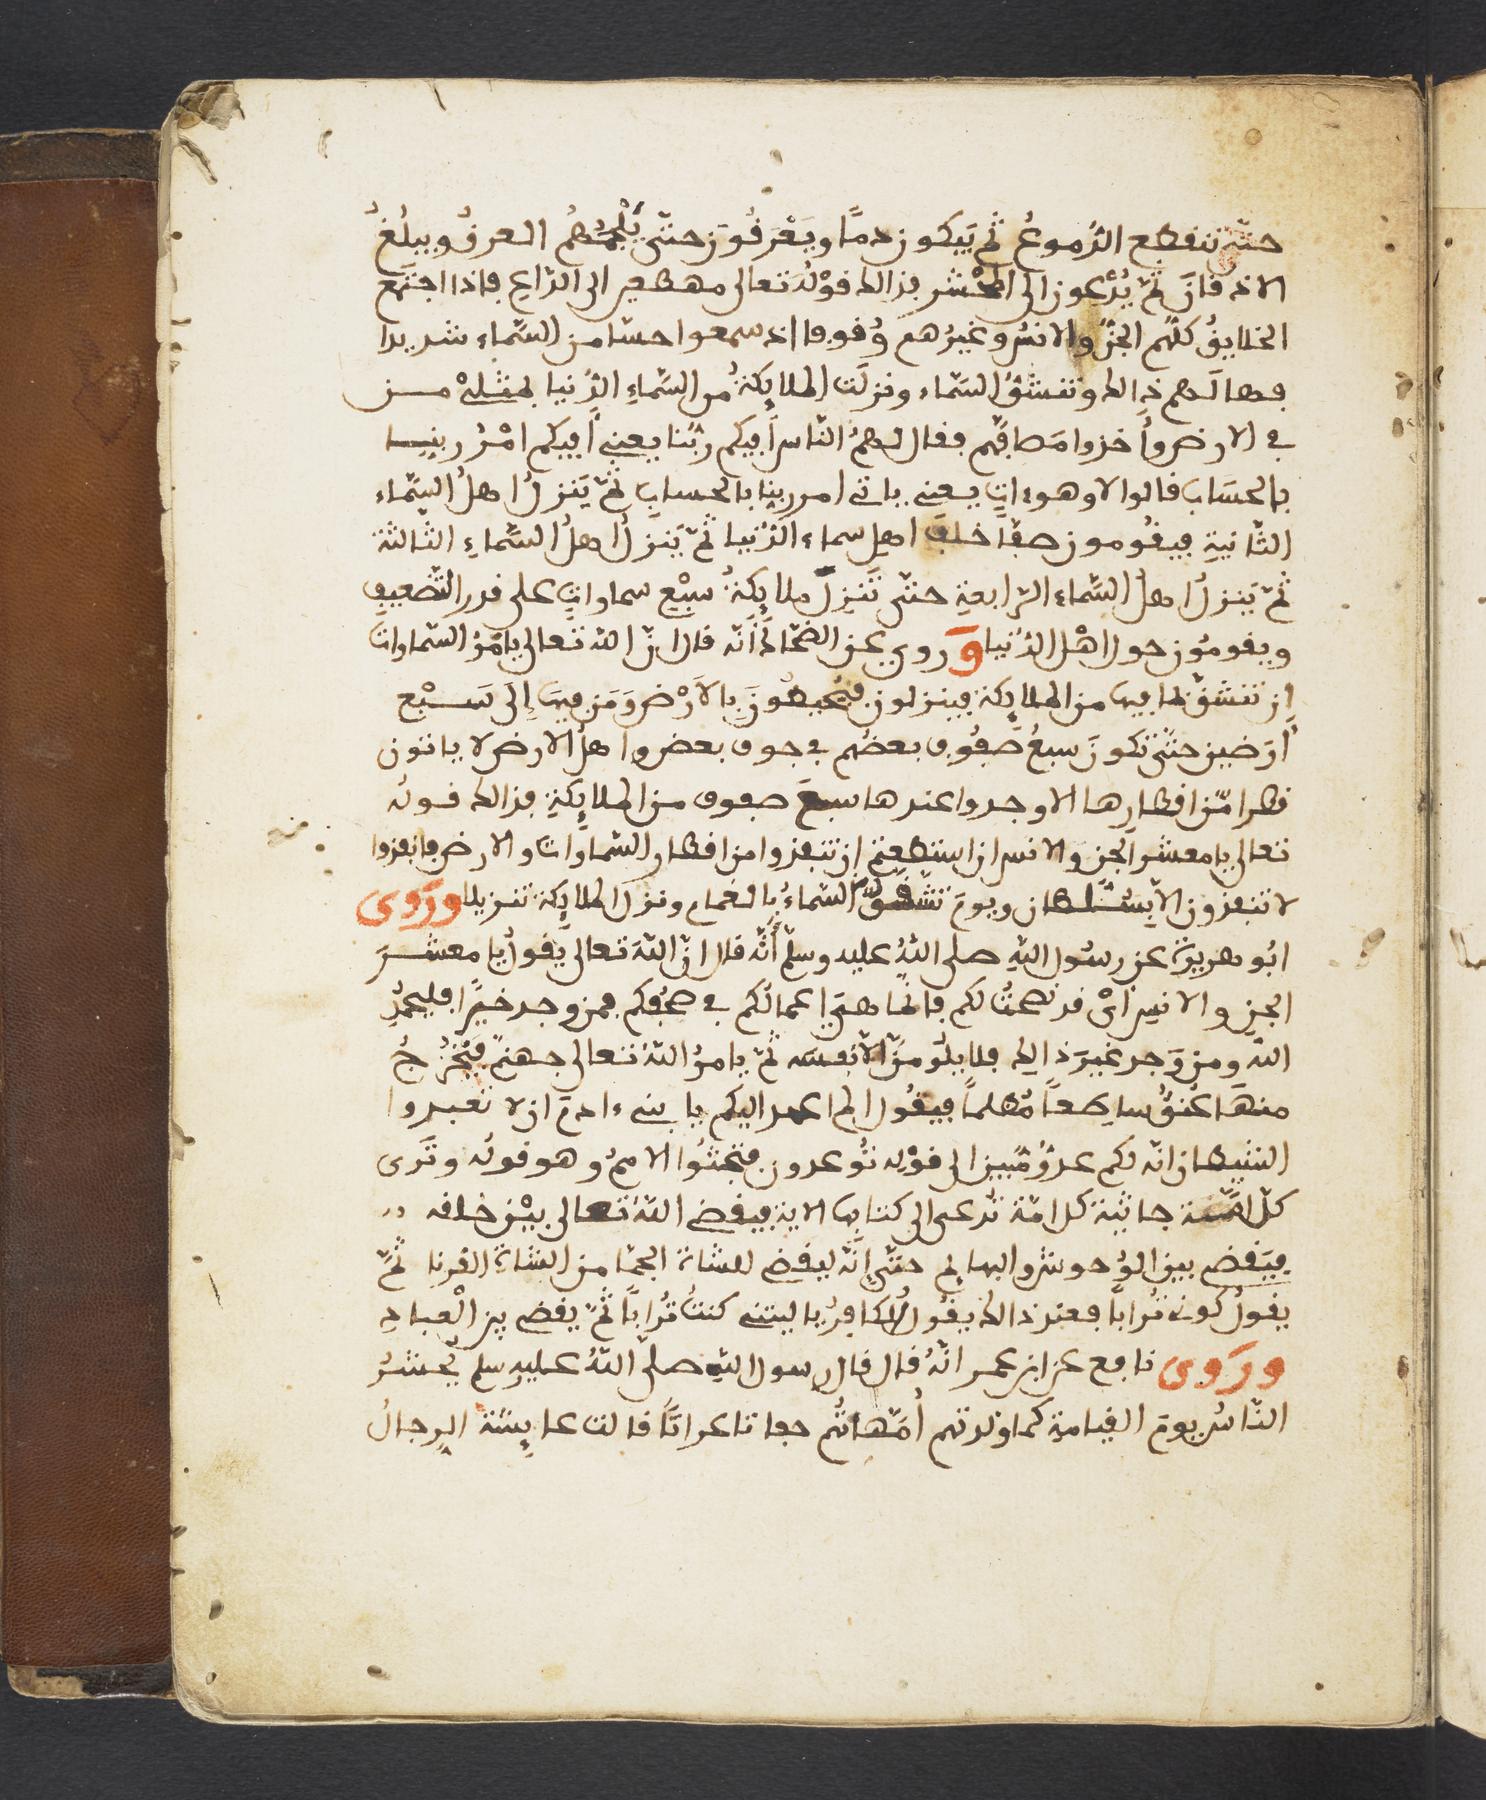 حتى تنقطع الدُموعُ ثم يَبكون دمًا ويَعْرَقُون حتّى يُلْجِمُهُمُ العرقُ ويبلُغُ
الاذقانَ ثمّ يُدْعون الى المَحْشر فذالك قوْلُهُ تعالى مهطعين الى الدّاعِ فاذا اجتمع
الخلايقُ كلّهُم الجنُّ والانسُ وغيرُهم وُقوفا اذ سمعوا حسّا من السّماء شديدا
فهالَهم ذالك وتنشقُّ السّماء ونزلَت الملايكةُ من السّماءِ الدُنيا بمثلىْ مـن
في الارض وأخذوا مَصافّهم فقال لهمُ النّاس أفيكم رَبُّنا يعني أفيكم امْرُ ربِنـا
بالحسَاب قالوا لا وهو ءاتٍ يعنى ياتي امر ربنا بالحساب ثمّ يَنزلُ اهلُ السّماء
الثّانيةِ فيقُومون صفّاً خلفَ اهل سماء الدُنيا ثمّ يَنزلُ اهلُ السّماءِ الثالثة
ثمّ يَنزلُ اهلُ السّماء الرّابعةِ حتّى تَنزِلَ ملايِكةُ سبْعِ سماواتٍ على قدر التّضعيفِ
ويقومُون حول اهْل الدُنيا وَروي عن الضحّاك أنّه قال انّ الله تعالى يامُرُ السّماوات
اِن تنشقّ بما فيها من الملايِكة فينزلون فيُحيطُونَ بِالاَرْض وَمَن فيهَا إِلى سَـبْعِ
أرَضين حتّى تكونَ سبعُ صُفُوفٍ بعضُهم في جوف بعض واهلُ الارض لا ياتون
قطرا مّن اقطارِها الا وجدوا عندها سبعَ صفوف من الملايِكةِ فذالك قـولُه
تعالى يا معشر الجن والانس ان استطعتم ان تنفذوا من اقطار السّماوات والارض فانفذوا
لا تنفذون الاّ بسُلطان ويومَ تشّقّقُ السّماءُ بالغمام ونزل الملايِكة تنزيلا ورَوى
ابُو هريرة عن رسُول اللهِ صلى اللهُ عليه وسلّم أنّه قال انّ اللهَ تعالى يقولُ يا معشـرَ
الجنِ والانسِ انى قد نصحتُ لكم فانّما هىَ اعمالُكم في صحُفِكم فمن وجد خيرًا فليحمدِ
اللهَ ومن وَجد غيرَ ذالك فلا يلُومنّ الاّ نفسَه ثمّ يامرُ اللهُ تعالى جهنمَ فيَخْرُجُ
منهَا عُنُقٌ ساطِعاً مُظلماً فيقُول الم اعهد اليكم يا بنى ءادمَ ان لا تعبدوا
الشيطان انّه لكم عدوٌّ مُّبين الى قوْلِه تُوعدون فتجثُوا الاممُ وهو قولُه وتَرى
كلّ امّـة جاثية كل امّة تُدعى الى كتابها الاية فيقضى اللهُ تعالى بيْن خلقه
فيَقضى بين الوُحوش والبهايِم حتّى إنّه ليقضى للشاة الجمّا من الشاة القرنا ثمّ
يقولُ كونى تُراباً فعند ذالك يقُولُ الكافِرُ يا ليتنى كنتُ تُراباً ثمّ يقضى بين الْعبادِ
ورَوى نافع عن ابن عمر انّهُ قال قال رسول اللهِ صلّى اللهُ عليهِ سلم يُحشرُ
النّاسُ يومَ القيامة كما ولدتهم أُمّهَاتُهم حفاتا عراتاً قالت عايِشة الرِجالُ